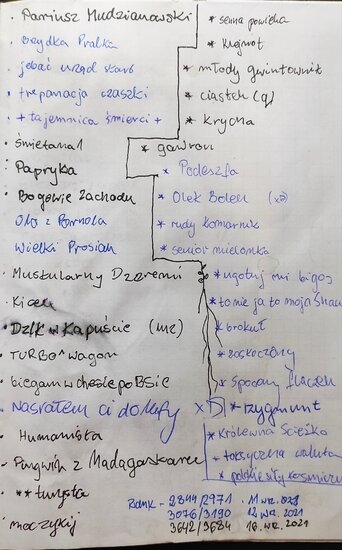 Dariusz Mudzianowski
brzydka Pralka
jebać urząd skarb
trepanacja czaszki
+ tajemnica śmierci +
śmietana1
Papryka
Bogowie Zachodu
Olej z Pornola
Wielki Prosiak
Muskularny Dzeremi
Kicek
Dzik w Kapuście (mc)
TURBO^wagon
biegam w dresie po BSie
Nasrałem ci do kufy
Humanista
Pingwin z Madagaskaru
** turysta
moczykij
* senna powieka
* Kujnot
* młody gwintownik
* ciastek (q)
* krycha
* gawron
* Podeszfa
* Olek Bolek
* rudy komornik
* senior mielonka
* ugotuj mi bigos
* to nie ja to moja
* brokuł
* zaskoczony
* Spocony
* Izygmunt
* Królewna Ścieżka
* toksyczna waluta
* polskie siły kosmiczne
RANK - 2844/2971 - 11 wrz. 2021
3076/3190 12 wrz. 2021
3642/3684 16. wrz. 2021